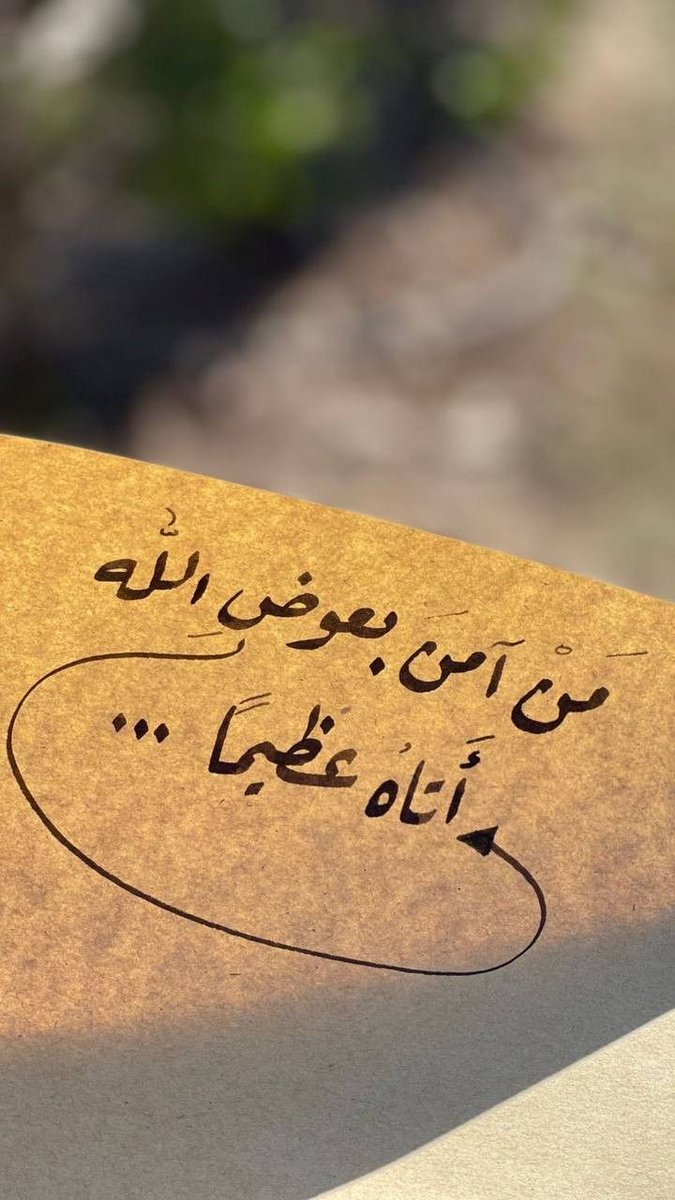 مَنْ آمنَ بعوضِ اللّه
أَتاهُ عظيمًا ...